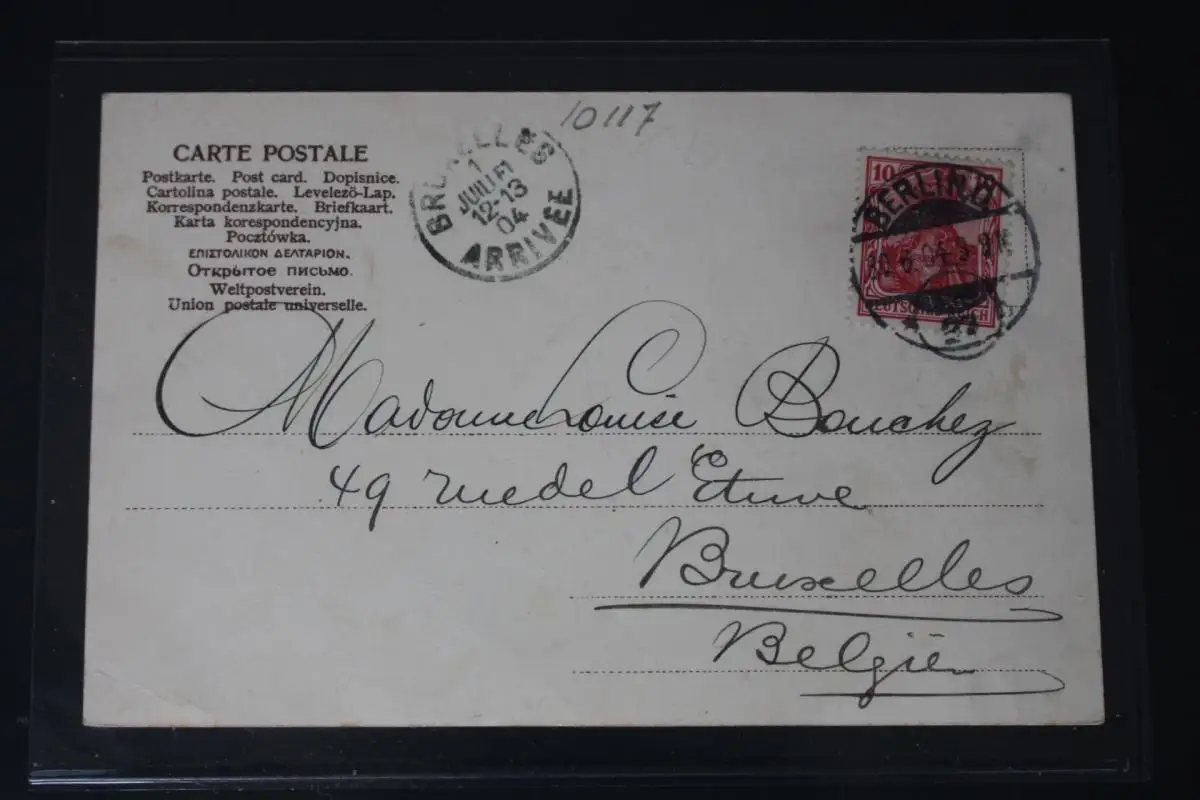 10117
CARTE POSTALE
Postkarte. Post card. Dopisnice.
Cartolina postale. Levelező-Lap.
Korrespondenzkarte. Briefkaart.
Karta korespondencyjna.
Pocztówka.
ΕΠΙΣΤΟΛΙΚΟΝ ΔΕΛΤΑΡΙΟΝ.
Открытое письмо.
Weltpostverein.
Union postale universelle.
BRUXELLES
1
JUILLET
12-13
04
ARRIVÉE
10
BERLIN
30.6.04.3-
DEUTSCHES REICH
Madame Louise Bouchez
49 rue del Etuve
Bruxelles
Belgien